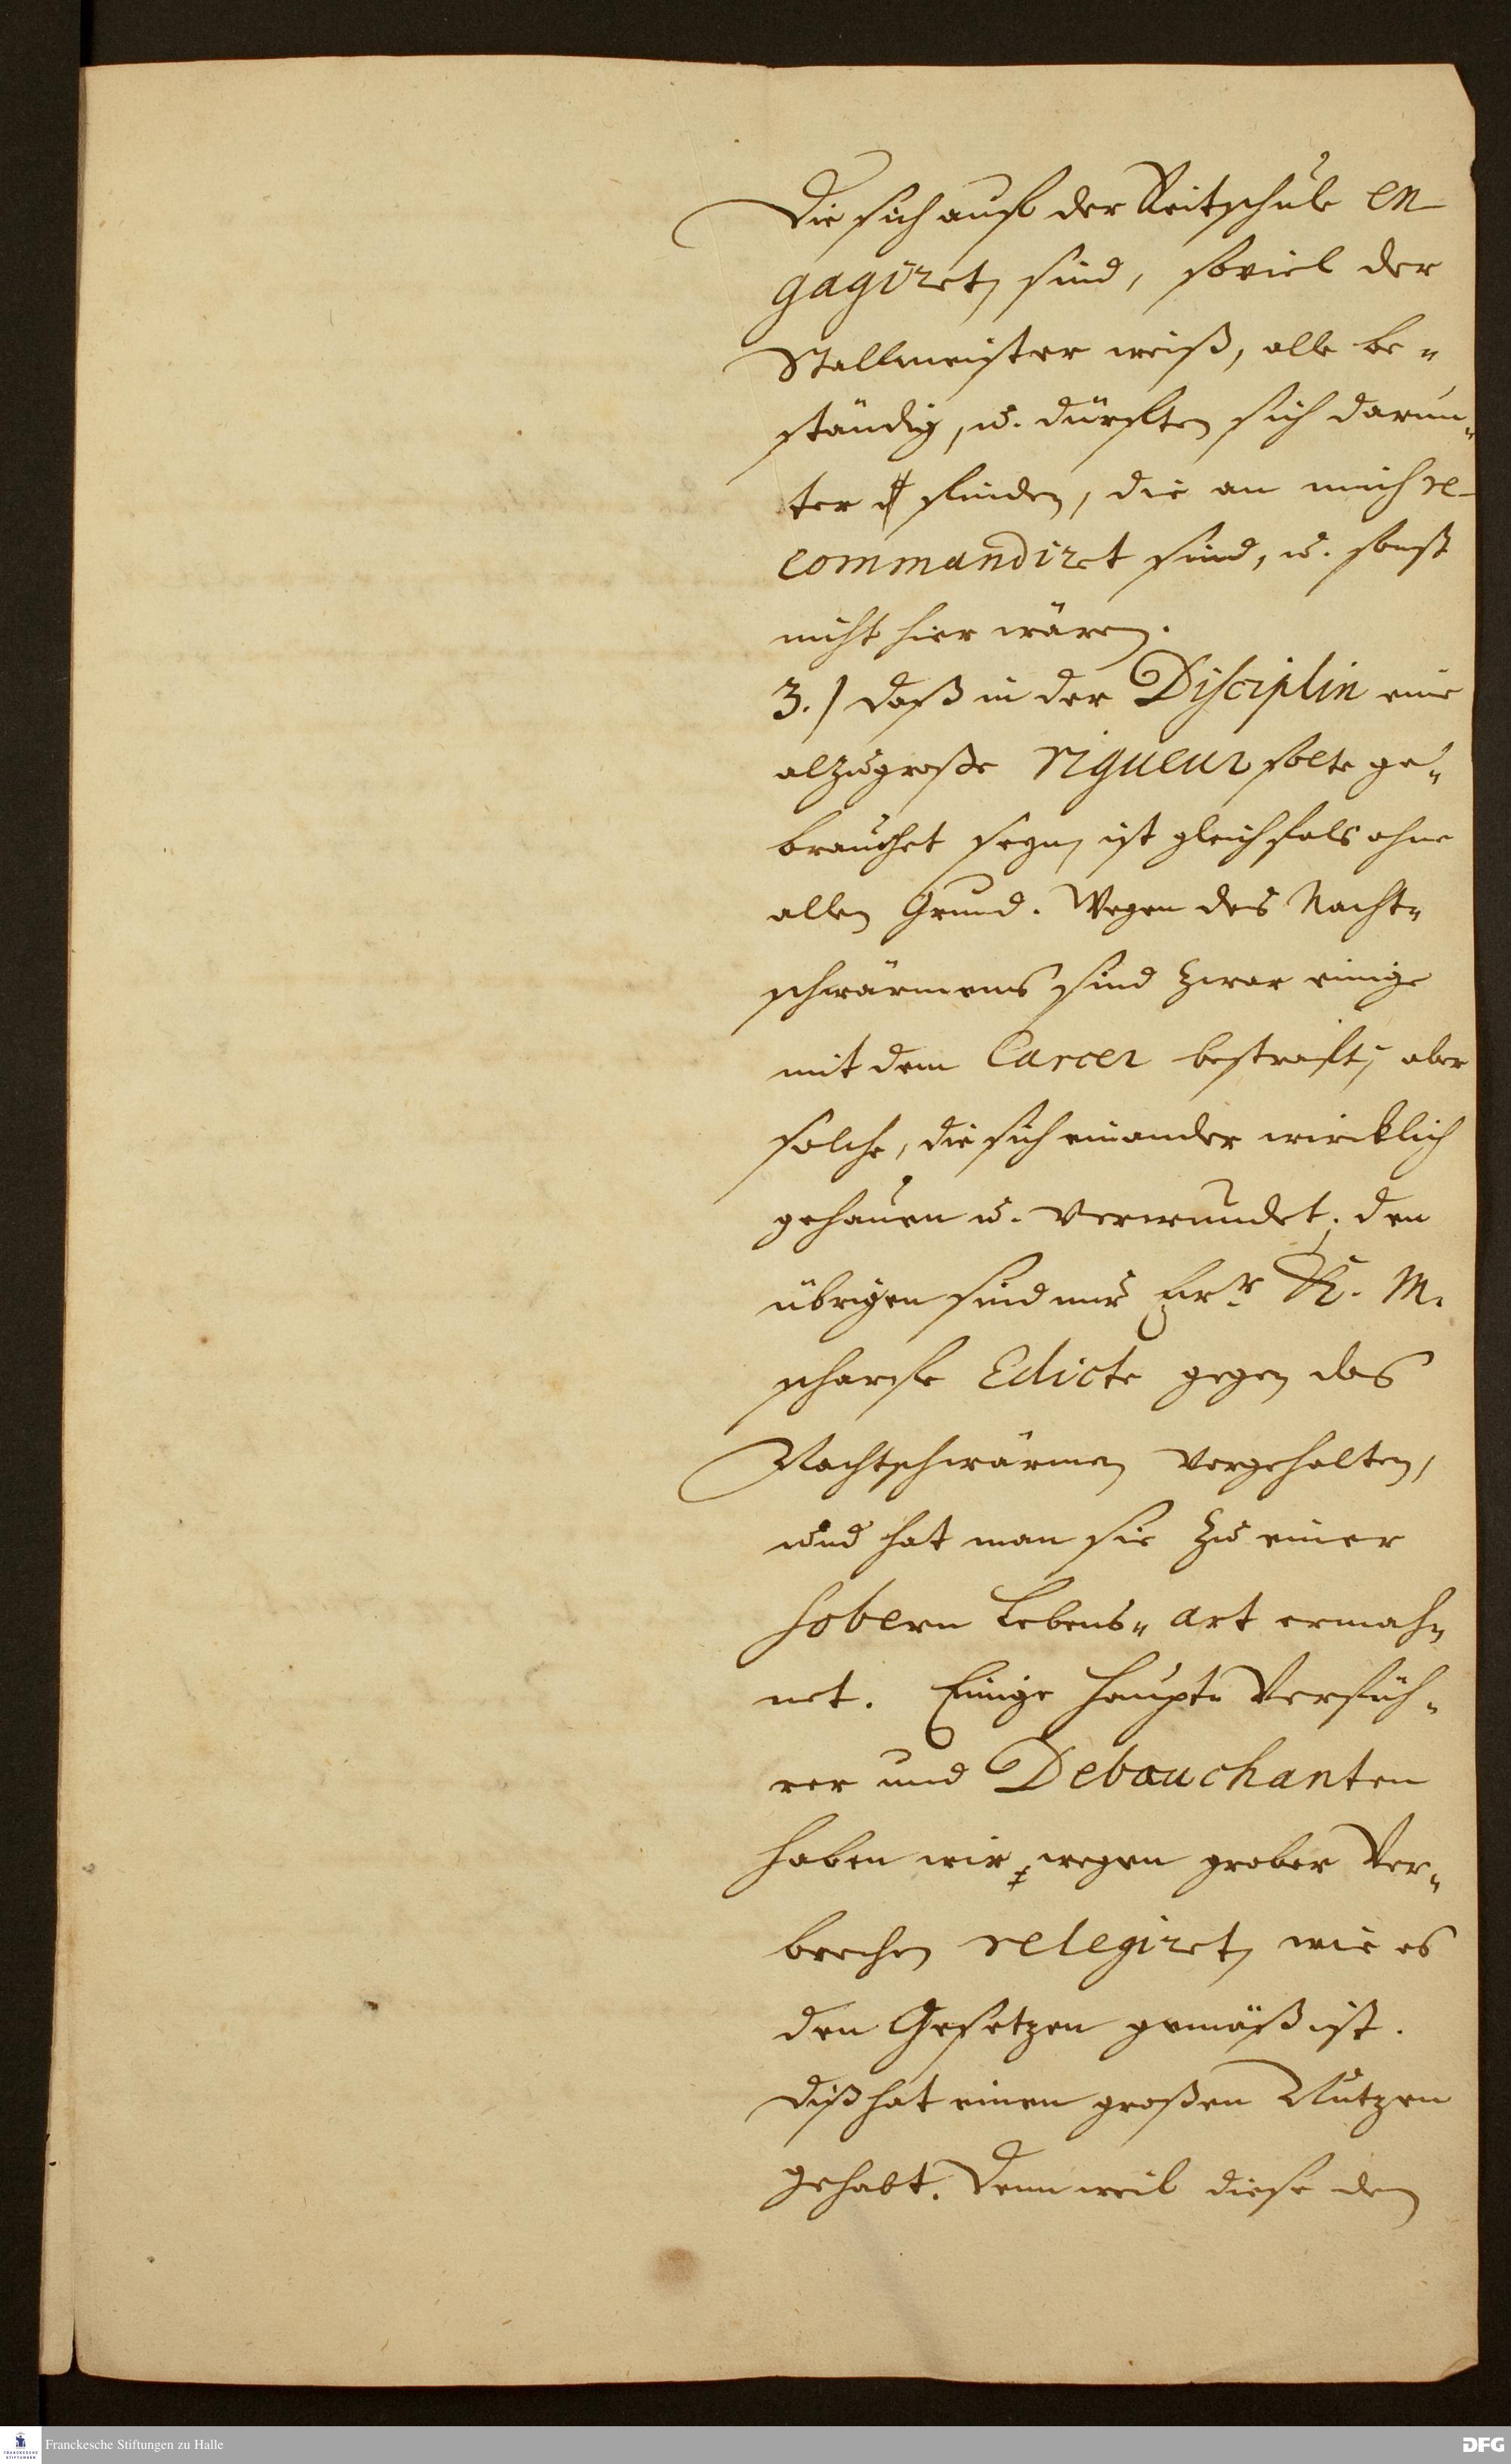 Die sich auf der Reitschule en-
gagiret sind, soviel der
Stallmeister weiß, alle be-
ständig, u. dürfften sich darun-
ter finden, die an mich re-
commandiret sind, u. sonst
nicht hier wären.
3.) Daß in der Disciplin eine
alzugroße rigueur solte ge-
brauchet seyn, ist gleichfals ohne
allen Grund. Wegen des Nacht-
schwärmens sind zwar einige
mit dem Carcer bestraft, aber
solche, die sich einander wircklich
gehauen u. verwundet; den
übrigen sind nur Ew.r K. M.
scharfe Edicte gegen das
Nachtschwärmen vorgehalten,
und hat man sie zu einer
sobern Lebens-art ermah-
net. Einige Haupt-Verfüh-
rer und Debauchanten
haben wir wegen grober Ver-
brechen relegiret, wie es
den Gesetzen gemäß ist.
Diß hat einen großen Nutzen
gehabt. Denn weil diese den
Franckesche Stiftungen zu Halle
FRANCKESCHE STIFTUNGEN
DFG